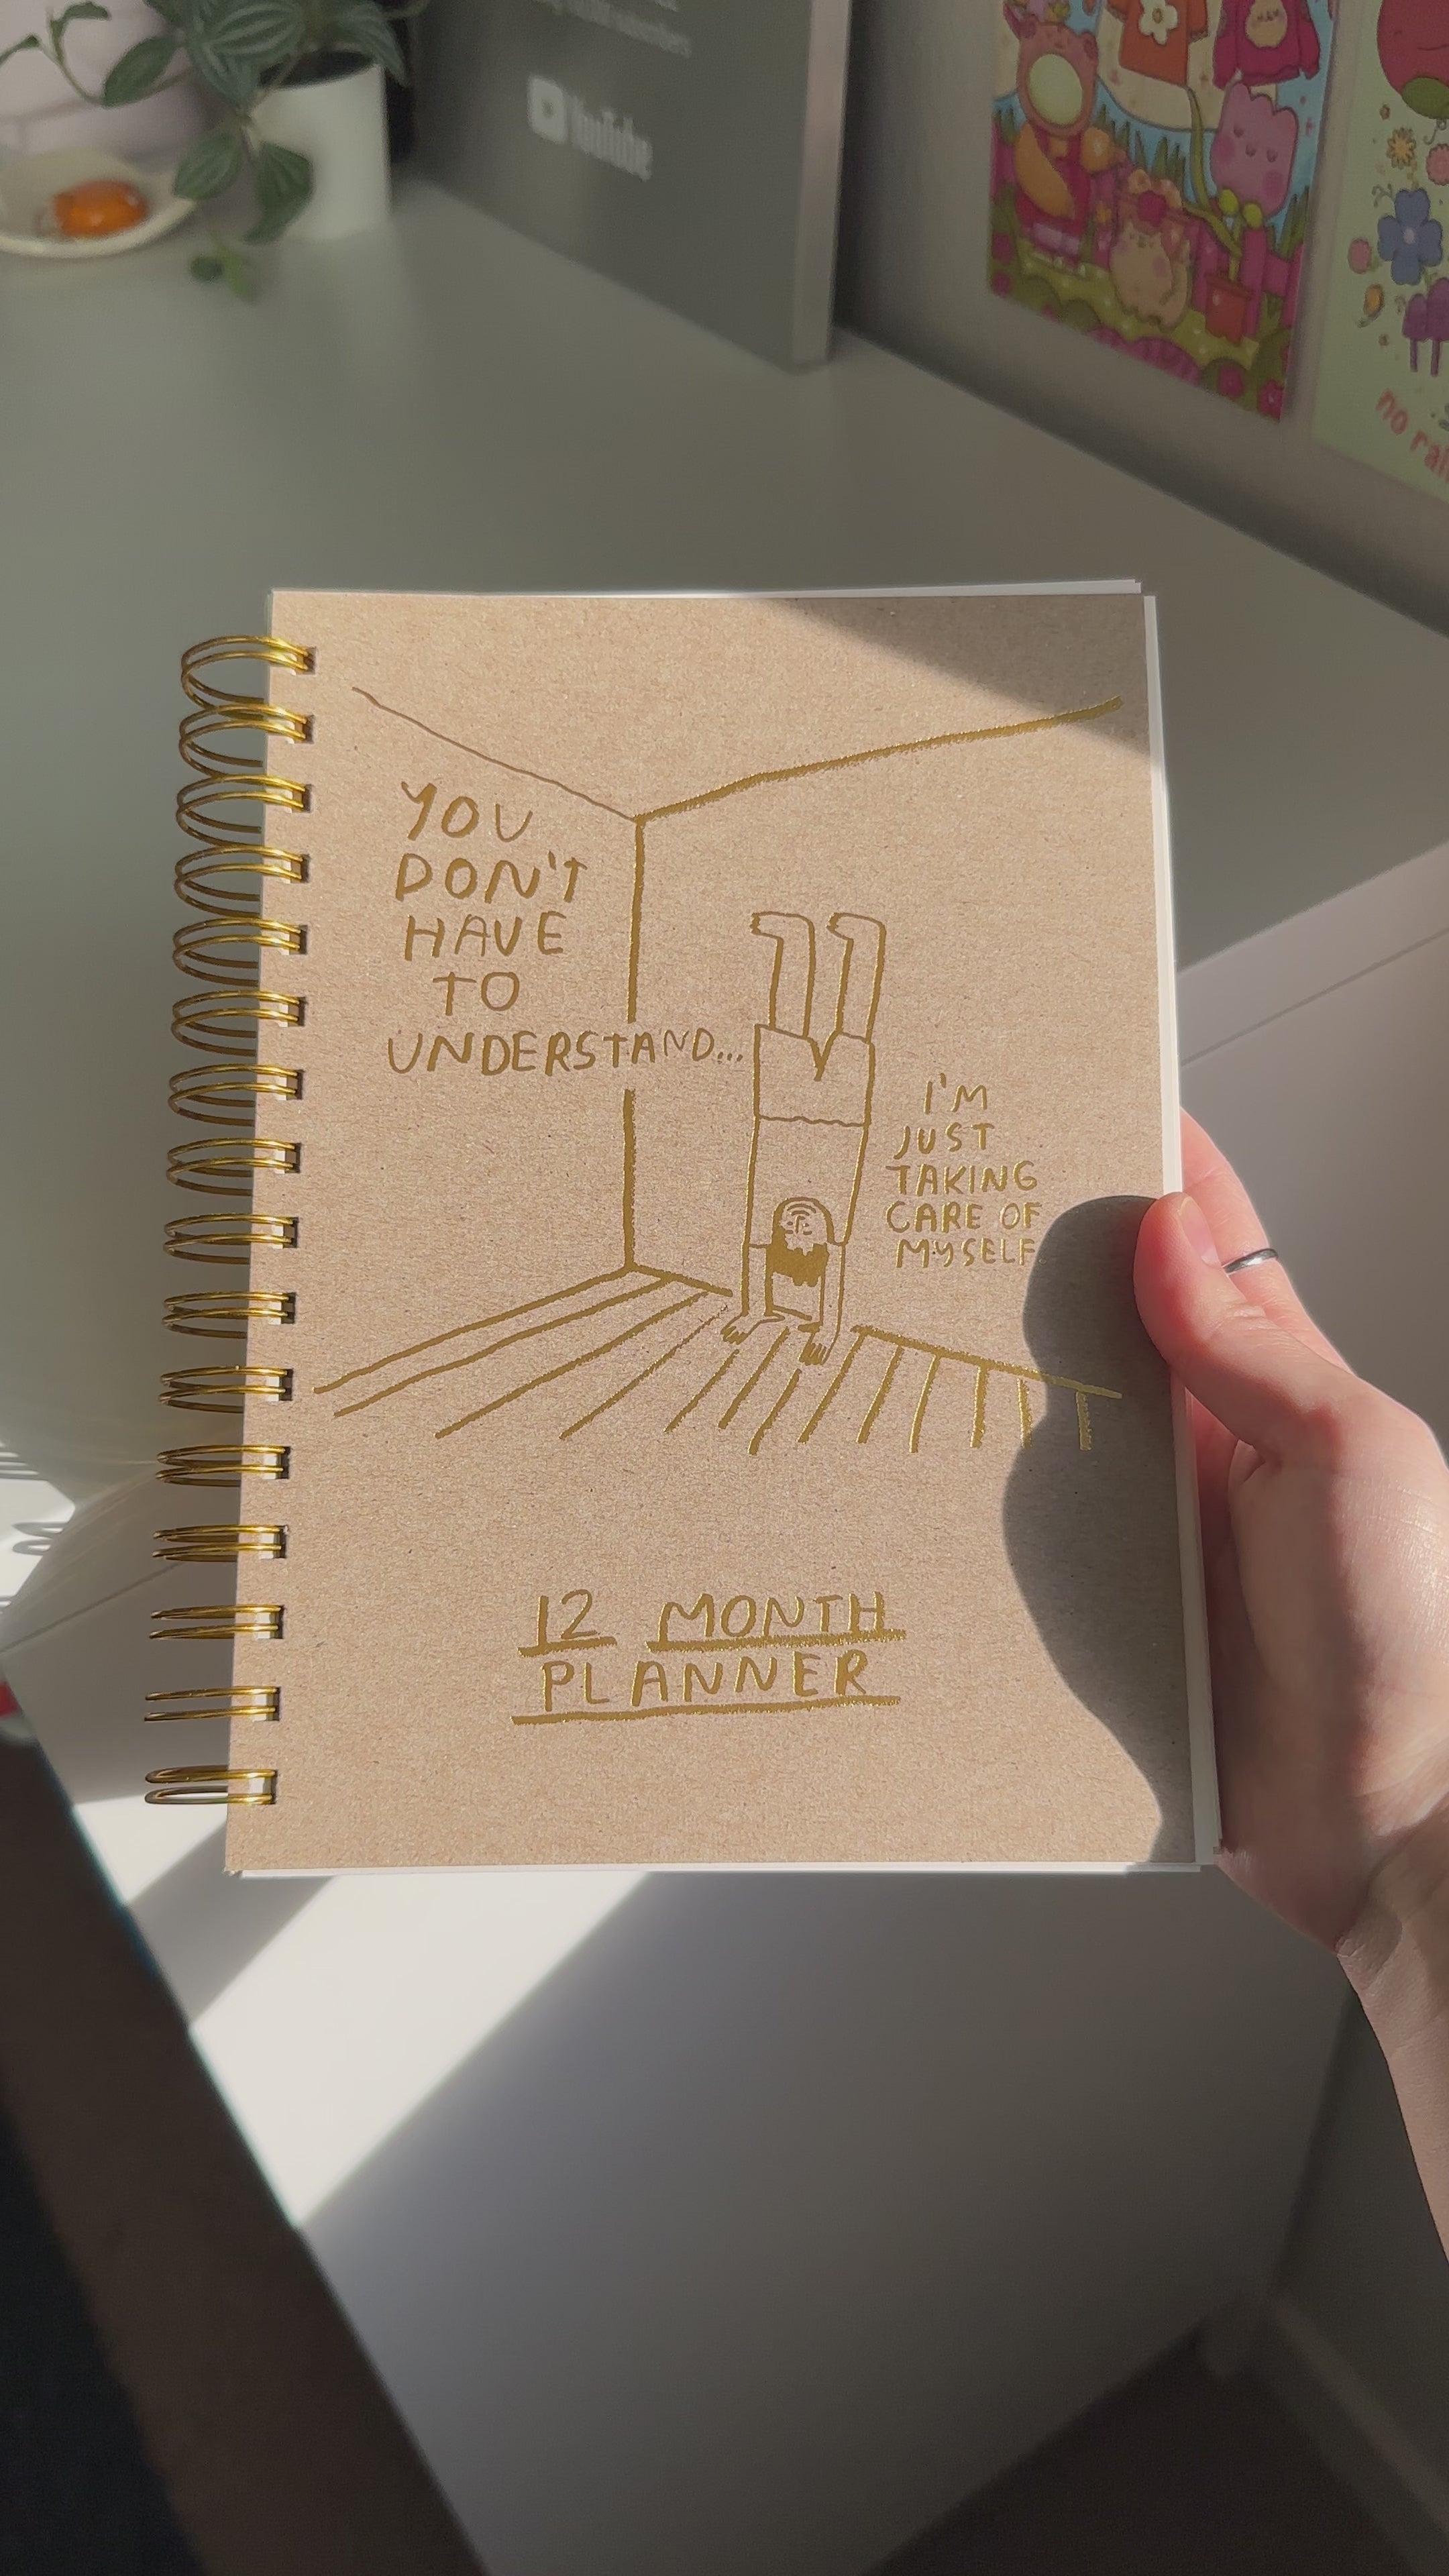 YouTube
no rai
YOU
DON'T
HAVE
TO
UNDERSTAND...
I'M
JUST
TAKING
CARE OF
MYSELF.
12 MONTH
PLANNER